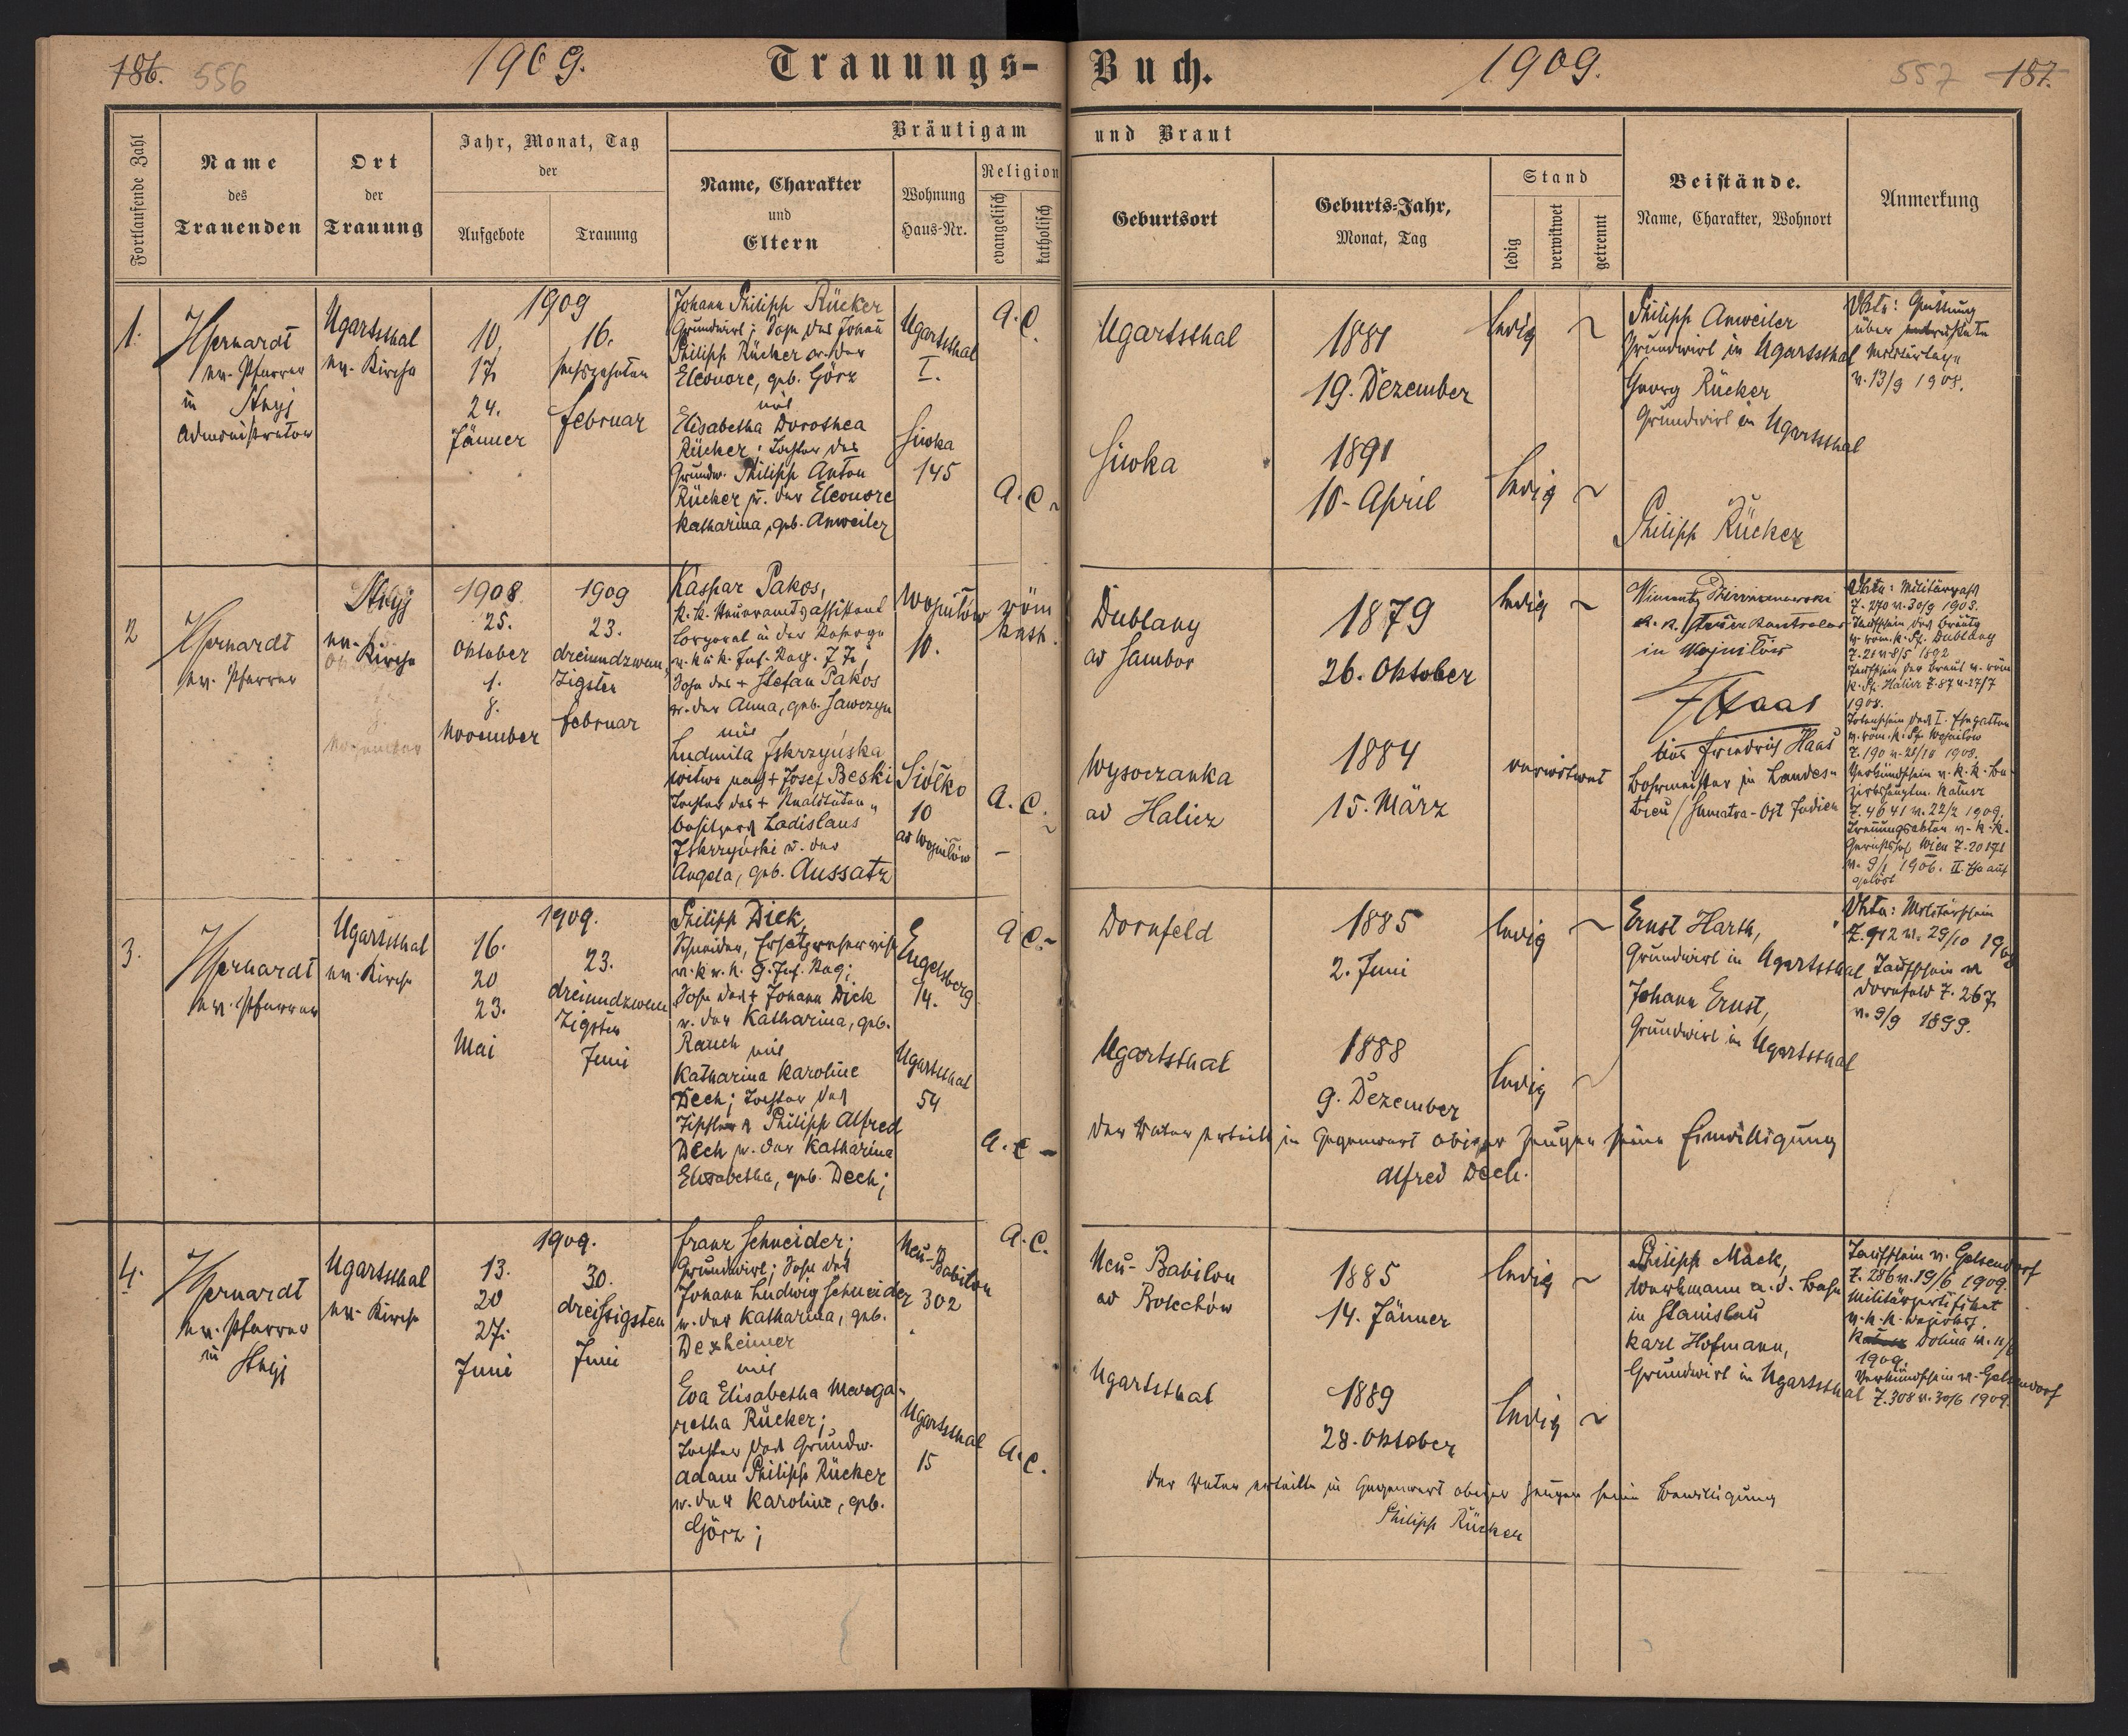 186. 556 1909. Trauungs-
Buch. 1909. 557 187.
Fortlaufende Zahl
Name
des
Trauenden
Ort
der
Trauung
Jahr, Monat, Tag
der
Aufgebote
Trauung
Bräutigam
und Braut
Name, Charakter
und
Eltern
Wohnung
Haus-Nr.
Religion
evangelisch
katholisch
Geburtsort
Geburts-Jahr,
Monat, Tag
Stand
ledig
verwitwet
getrennt
Beistände.
Name, Charakter, Wohnort
Anmerkung
1.
ev. Pfarrer
in Stryj
Administrator
Ugartsthal
ev. Kirche
1909
10.
17.
24.
Jänner
16.
sechszehnten
Februar
Johann Philipp Rücker
Grundwirt; Sohn des Johann
Philipp Rücker u. der
Eleonore, geb. Görz
mit
Elisabetha Dorothea
Rücker; Tochter des
Grundw. Philipp Anton
Rücker u. der Eleonore
Katharina, geb. Anweiler
Ugartsthal
I.
Siwka
145
A. C.
A. C.
Ugartsthal
Siwka
1881
19. Dezember
1891
10. April
ledig
ledig
Philipp Anweiler
Grundwirt in Ugartsthal
Georg Rücker
Grundwirt in Ugartsthal
Philipp Rücker
Vkta: Quittung
über
Militärtaxe
v. 13/9 1908.
2
ev. Pfarrer
Stryj
ev. Kirche
1908
25.
Oktober
1.
8.
November
1909
23.
dreiundzwan
zigsten
Februar
Kaspar Pakos,
k. k. Steueramtsassistent
Corporal in der Reserve
v. k. u. k. Inf. Reg. 77;
Sohn des + Stefan Pakos
u. der Anna, geb. Sawczyn
mit
Ludmila Iskrzyńska
Witwe nach + Josef Beski
Tochter des + Realitäten-
besitzers Ladislaus
Iskrzyński u. der
Angela, geb. Aussatz
Wojniłów
10.
Siółko
10
ad Wojniłów
röm
kath.
A. C.
Dublany
ad Sambor
Wysoczanka
ad Halicz
1879
26. Oktober
1884
15. März
ledig
verwitwet
k. k. Steuer Kontrolor
in Wojniłów
Haas
Friedrich Haas
Bohrmeister in Landes-
treu / Sumatra-Ost Indien
Vkta: Militärpaß
Z. 270 v. 30/9 1908.
Taufschein des Bräutig
v. röm. k. Pf. Dublany
Z. 21 v. 8/5 1892
Taufschein der Braut v. röm
k. Pf. Halicz Z. 87 v. 27/7
1908.
Totenschein des I. Ehegatten
v. röm. k. Pf. Wojniłow
Z. 190 v. 28/10 1908.
Verkündschein v. k. k. Be-
zirkshauptm. Kałusz
Z. 4641 v. 22/2 1909.
Trennungsakten v. k. k.
Gerichtshof Wien Z. 20171
v. 9/1 1906. II. Ehe auf
gelöst
3.
ev. Pfarrer
Ugartsthal
ev. Kirche
1909.
16.
20
23.
Mai
23.
dreiundzwan
zigsten
Juni
Philipp Dick,
Schneider, Ersatzreservist
v. k. u. k. 9. Inf. Reg;
Sohn des + Johann Dick
u. der Katharina, geb.
Rauch mit
Katharina Karoline
Dech; Tochter des
Tischlers Philipp Alfred
Dech u. der Katharina
Elisabetha, geb. Dech;
Engelsberg
14.
Ugartsthal
54
A. C.
A. C.
Dornfeld
Ugartsthal
1885
2. Juni
1888
9. Dezember
ledig
ledig
der Vater erteilt in Gegenwart obiger Zeugen seine Einwilligung
Alfred Dech.
Ernst Harth,
Grundwirt in Ugartsthal
Johann Ernst,
Grundwirt in Ugartsthal
Vkta: Militärschein
Z. 912 v. 29/10 1908
Taufschein v.
Dornfeld Z. 267
v. 9/9 1899.
4.
ev. Pfarrer
in
Stryj
Ugartsthal
ev. Kirche
1909.
13.
20
27.
Juni
30.
dreißigsten
Juni
Franz Schneider;
Grundwirt; Sohn des
Johann Ludwig Schneider
u. der Katharina, geb.
Dexheimer
mit
Eva Elisabetha Marga-
retha Rücker;
Tochter des Grundw.
Adam Philipp Rücker
u. der Karoline, geb.
Görz;
Neu-Babilon
302
Ugartsthal
15
A. C.
A. C.
Neu-Babilon
ad Bolechów
Ugartsthal
1885
14. Jänner
1889
28. Oktober
ledig
ledig
der Vater erteilte in Gegenwart obiger Zeugen seine Bewilligung
Philipp Rücker
Philipp Mack,
Werkmann a. d. Bahn
in Stanislau
Karl Hofmann,
Grundwirt in Ugartsthal
Taufschein v. Gelsendorf
Z. 286 v. 19/6 1909.
Militärzertifikat
Dolina
1909.
Verkündschein v. Gelsendorf
Z. 308 v. 30/6 1909.